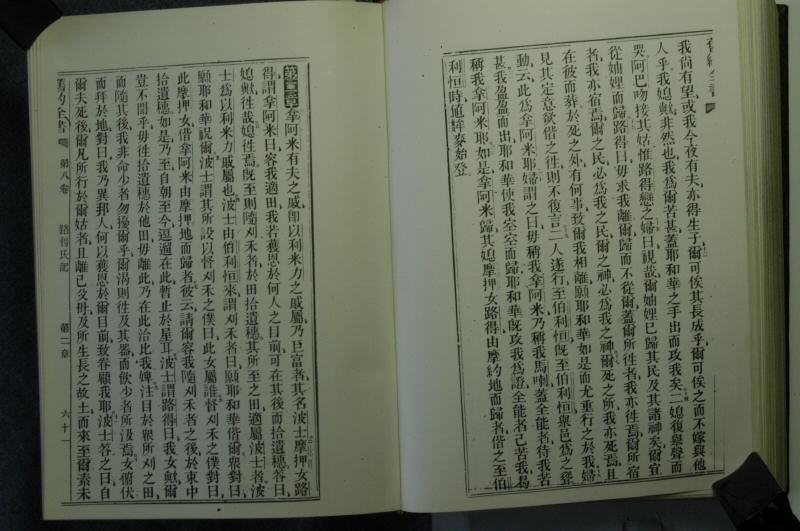 舊約全書
我尚有望或我今夜有夫亦得生子爾可俟其長成乎爾可俟之而不嫁與他
人乎我媳歟非然也我爲爾苦甚蓋耶和華之手出而攻我矣二媳復舉聲而
哭阿巴吻接其姑惟路得戀之婦曰視哉爾妯娌已歸其民及其諸神矣爾宜
從妯娌而歸路得曰毋求我離爾歸而不從爾蓋爾所徃者我亦徃焉爾所宿
者我亦宿焉爾之民必爲我之民爾之神必爲我之神爾死之所我亦死焉且
在彼而葬於死之外有何事致爾我相離願耶和華如是而尤重行之於我婦
見其定意欲偕之徃則不復言二人遂行至伯利恒旣至伯利恒衆邑爲之聳
動云此爲拿阿米耶婦謂之曰毋稱我拿阿米乃稱我馬喇蓋全能者待我苦
甚我盈盈而出耶和華使我空空而歸耶和華旣攻我爲證全能者已苦我曷
稱我拿阿米耶如是拿阿米歸其媳摩押女路得由摩押地而歸者偕之至伯
利恒時適𪍿麥始登
第二章拿阿米有夫之戚卽以利米力之戚屬乃巨富者其名波士摩押女路
得謂拿阿米曰容我適田我若獲恩於何人之目前可在其後而拾遺穗答曰
媳歟徃哉媳徃焉旣至則隨刈禾者於田拾遺穗其所至之田適屬波士者波
士爲以利米力戚屬也波士由伯利恒來謂刈禾者曰願耶和華偕爾衆對曰
願耶和華祝爾波士謂其所設以督刈禾之僕曰此女屬誰督刈禾之僕對曰
此摩押女偕拿阿米由摩押地而歸者彼云請爾容我隨刈禾者之後於束中
拾遺穗如是乃至自朝至今逗遛在此暫止於屋耳波士謂路得曰我女歟爾
豈不聞乎毋徃拾遺穗於他田毋離此乃在此洽比我婢注目於衆所刈之田
而隨其後我非命少者勿擾爾乎爾渴則徃及其器而飲少者所汲焉女俯伏
而拜於地對曰我乃異邦人何以獲恩於爾目前致眷顧我耶波士答之曰自
爾夫死後爾凡所行於爾姑者且離己父母及所生長之故土而來至爾素未
舊約全書 第八卷 路得氏記 第二章 六十一